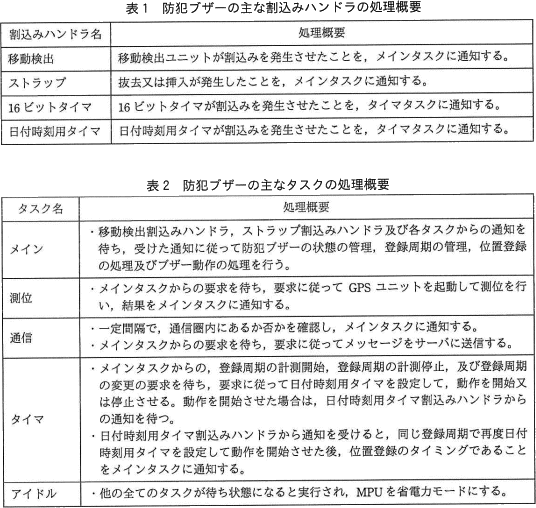 表1 防犯ブザーの主な割込みハンドラの処理概要
割込みハンドラ名 処理概要
移動検出 移動検出ユニットが割込みを発生させたことを，メインタスクに通知する。
ストラップ 抜去又は挿入が発生したことを，メインタスクに通知する。
16ビットタイマ 16ビットタイマが割込みを発生させたことを，タイマタスクに通知する。
日付時刻用タイマ 日付時刻用タイマが割込みを発生させたことを，タイマタスクに通知する。
表2 防犯ブザーの主なタスクの処理概要
タスク名 処理概要
メイン
・移動検出割込みハンドラ，ストラップ割込みハンドラ及び各タスクからの通知を
待ち，受けた通知に従って防犯ブザーの状態の管理，登録周期の管理，位置登録
の処理及びブザー動作の処理を行う。
測位
・メインタスクからの要求を待ち，要求に従って GPS ユニットを起動して測位を行
い，結果をメインタスクに通知する。
通信
・一定間隔で，通信圏内にあるか否かを確認し，メインタスクに通知する。
・メインタスクからの要求を待ち，要求に従ってメッセージをサーバに送信する。
タイマ
・メインタスクからの，登録周期の計測開始，登録周期の計測停止，及び登録周期
の変更の要求を待ち，要求に従って日付時刻用タイマを設定して，動作を開始又
は停止させる。動作を開始させた場合は，日付時刻用タイマ割込みハンドラから
の通知を待つ。
・日付時刻用タイマ割込みハンドラから通知を受けると，同じ登録周期で再度日付
時刻用タイマを設定して動作を開始させた後，位置登録のタイミングであること
をメインタスクに通知する。
アイドル ・他の全てのタスクが待ち状態になると実行され，MPU を省電力モードにする。